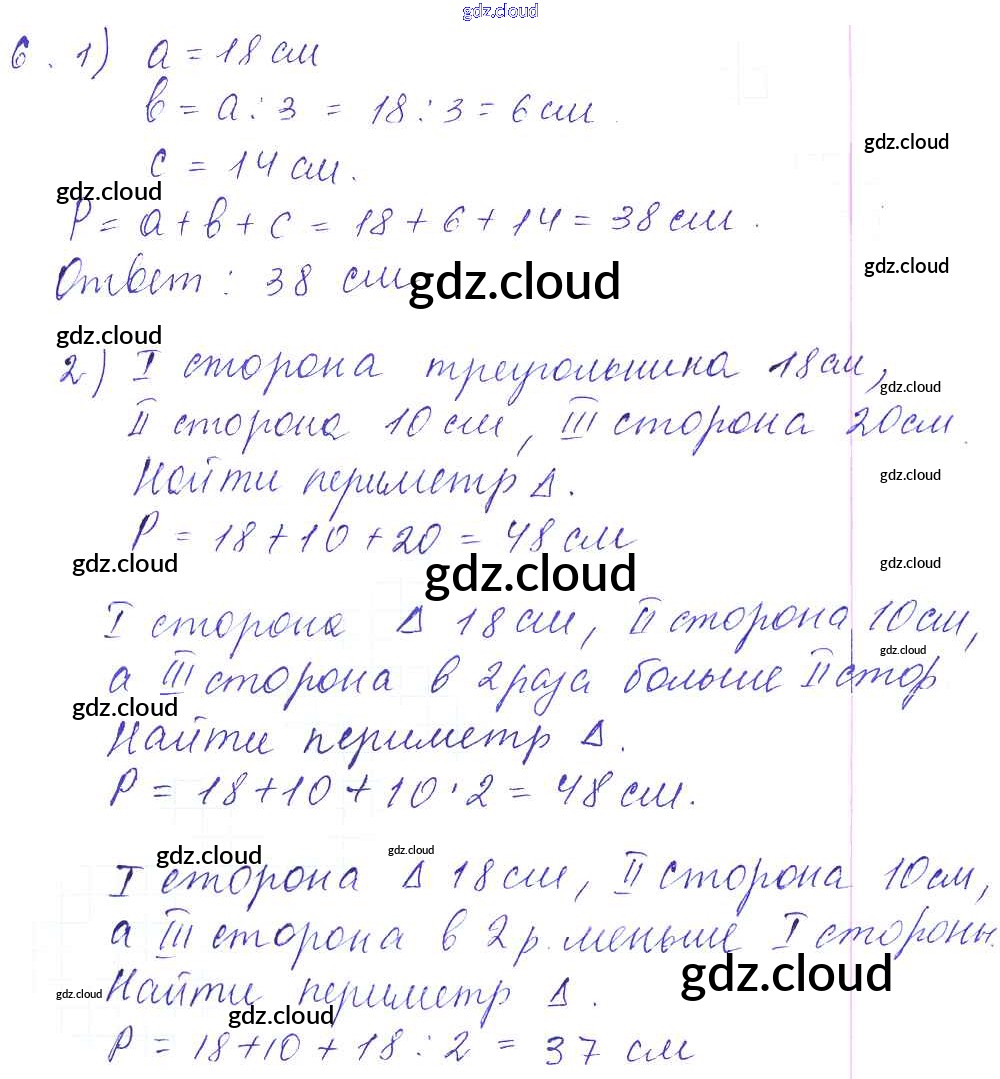 gdz.cloud
6. 1) a = 18 см
b = a : 3 = 18 : 3 = 6 см.
gdz.cloud
c = 14 см.
gdz.cloud
P = a + b + c = 18 + 6 + 14 = 38 см.
gdz.cloud
Ответ: 38 см
gdz.cloud
gdz.cloud
2) I сторона треугольника 18 см,
gdz.cloud
II сторона 10 см, III сторона 20 см.
gdz.cloud
Найти периметр Δ.
P = 18 + 10 + 20 = 48 см
gdz.cloud
gdz.cloud
gdz.cloud
I сторона Δ 18 см, II сторона 10 см,
gdz.cloud
а III сторона в 2 раза больше II стор
gdz.cloud
Найти периметр Δ.
P = 18 + 10 + 10 · 2 = 48 см.
gdz.cloud
gdz.cloud
I сторона Δ 18 см, II сторона 10 см,
а III сторона в 2 р. меньше I стороны.
gdz.cloud
gdz.cloud
Найти периметр Δ.
gdz.cloud
P = 18 + 10 + 18 : 2 = 37 см